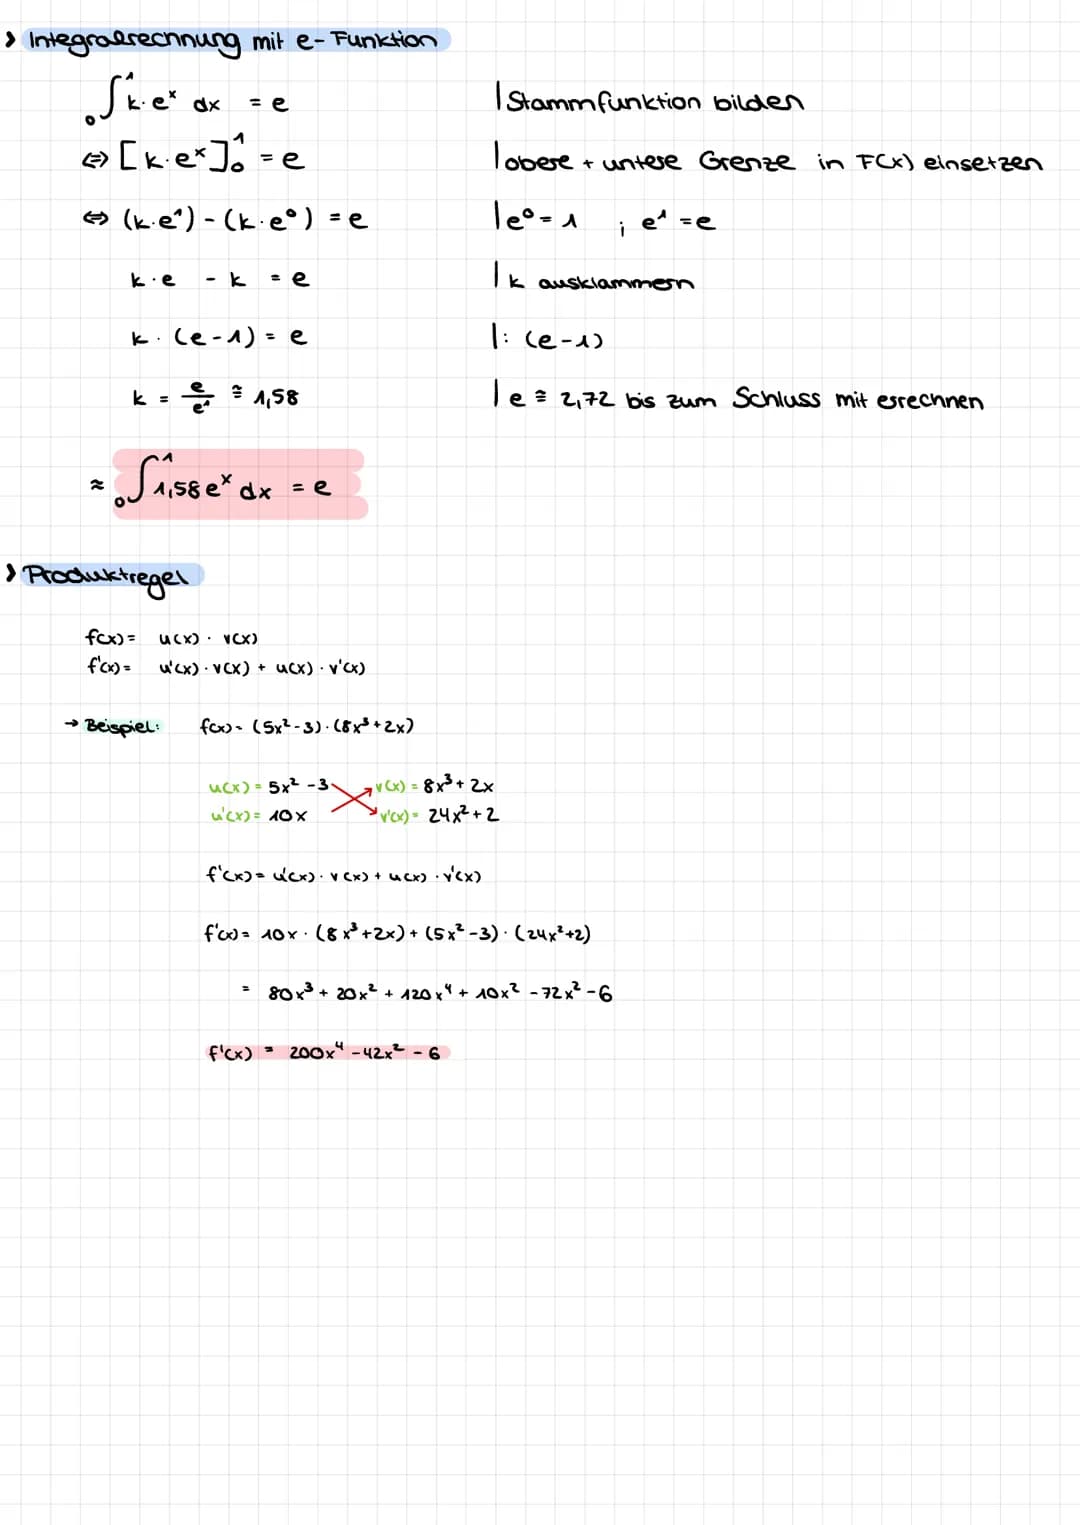 > Integralrechnung mit e-Funktion
₀∫¹ k·eˣ dx = e | Stammfunktion bilden
⇔ [k·eˣ]₀¹ = e | obere + untere Grenze in F(x) einsetzen
⇔ (k·e¹) - (k·e⁰) = e | e⁰ = 1 ; e¹ = e
k·e - k = e | k ausklammern
k·(e-1) = e | : (e-1)
k = e/e¹ ≅ 1,58 | e ≅ 2,72 bis zum Schluss mit errechnen
≈ ₀∫¹ 1,58 eˣ dx = e
> Produktregel
f(x) = u(x) · v(x)
f'(x) = u'(x) · v(x) + u(x) · v'(x)
→ Beispiel: f(x) = (5x²-3)·(8x³+2x)
u(x) = 5x² -3 v(x) = 8x³ + 2x
u'(x) = 10x v'(x) = 24x² + 2
f'(x) = u'(x) · v(x) + u(x) · v'(x)
f'(x) = 10x · (8x³+2x) + (5x²-3) · (24x²+2)
= 80x³ + 20x² + 120x⁴ + 10x² - 72x² - 6
f'(x) = 200x⁴ - 42x² - 6